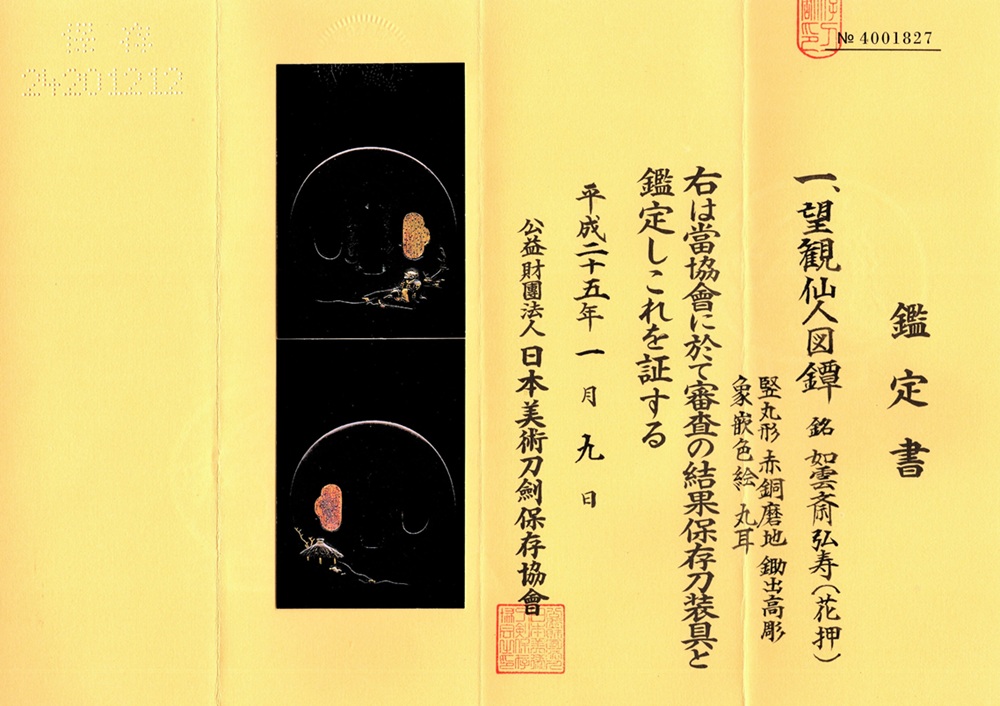 鑑定書
№ 4001827
一、望観仙人図鐔 銘 如雲斎弘寿(花押)
竪丸形 赤銅磨地 鋤出高彫
象嵌色絵 丸耳
右は當協會に於て審査の結果保存刀装具と
鑑定しこれを証する
平成二十五年一月九日
公益財團法人 日本美術刀劍保存協會
保存
24201212